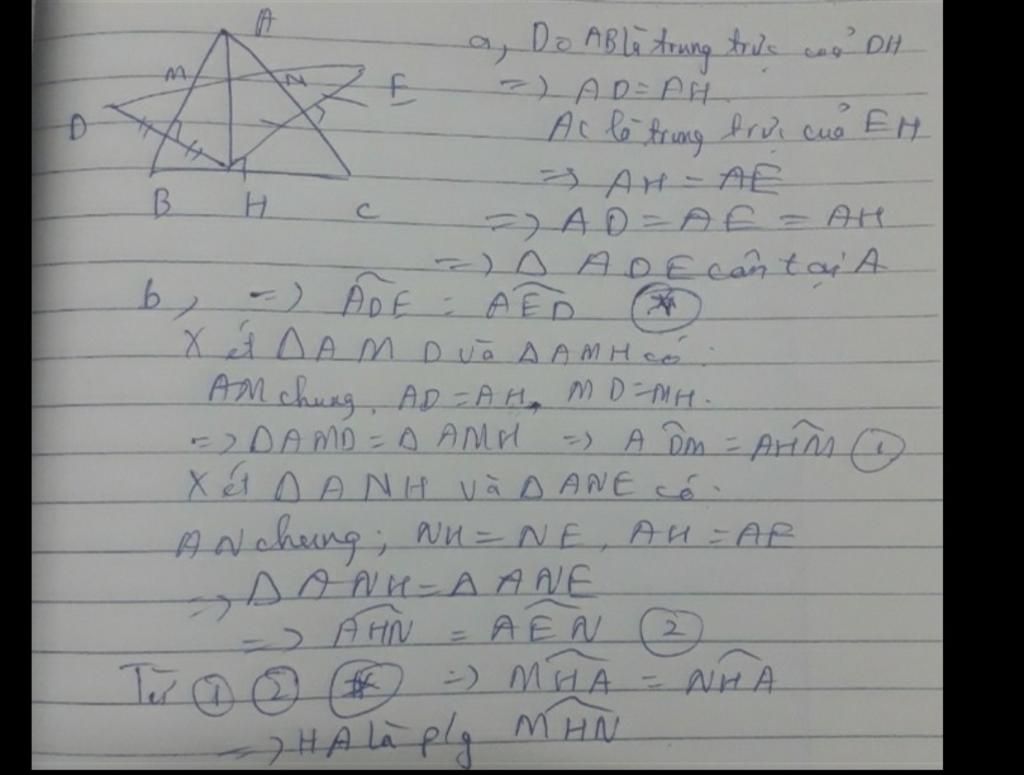 A
M
N
E
D
B H C
a, Do AB là trung trực của DH
=> AD = AH
AC là trung trực của EH
=> AH = AE
=> AD = AE = AH
=> Δ ADE cân tại A
b, => ADE = AED (*)
Xét ΔAMD và ΔAMH có:
AM chung, AD = AH, MD = MH.
=> ΔAMD = ΔAMH => ADM = AHM (1)
Xét ΔANH và ΔANE có:
AN chung; NH = NE, AH = AE
=> ΔANH = ΔANE
=> AHN = AEN (2)
Từ (1) (2) (*) => MHA = NHA
=> HA là p/g MHN